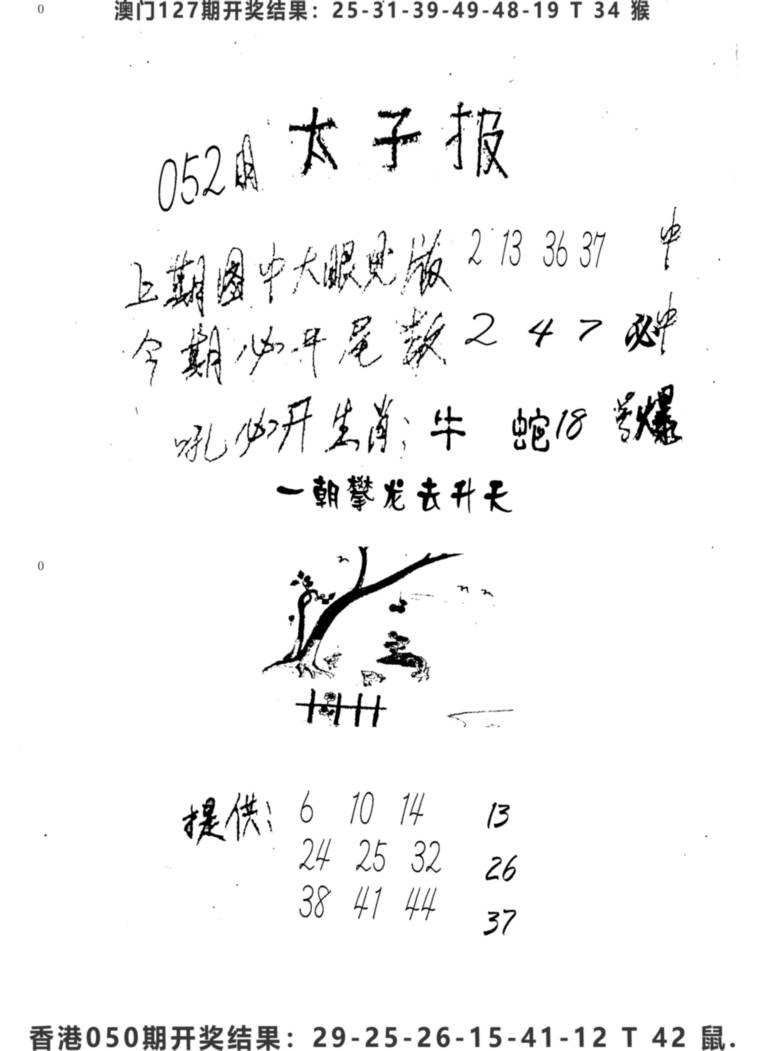 0
澳门127期开奖结果：25-31-39-49-48-19 T 34 猴
052期
太子报
上期图中大眼见版 2 13 36 37 中
今期必开尾数 2 4 7 必中
吼必开生肖：牛 蛇18 号爆
一朝攀龙去升天
0
提供： 6 10 14 13
24 25 32 26
38 41 44 37
香港050期开奖结果：29-25-26-15-41-12 T 42 鼠.